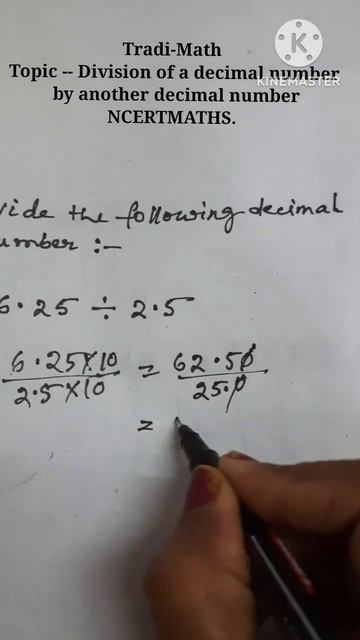 Tradi-Math
Topic -- Division of a decimal number
by another decimal number
NCERTMATHS.
KINEMASTER
vide the following decimal
umber :-
6.25 ÷ 2.5
6.25×10 / 2.5×10 = 62.50 / 25.0
=